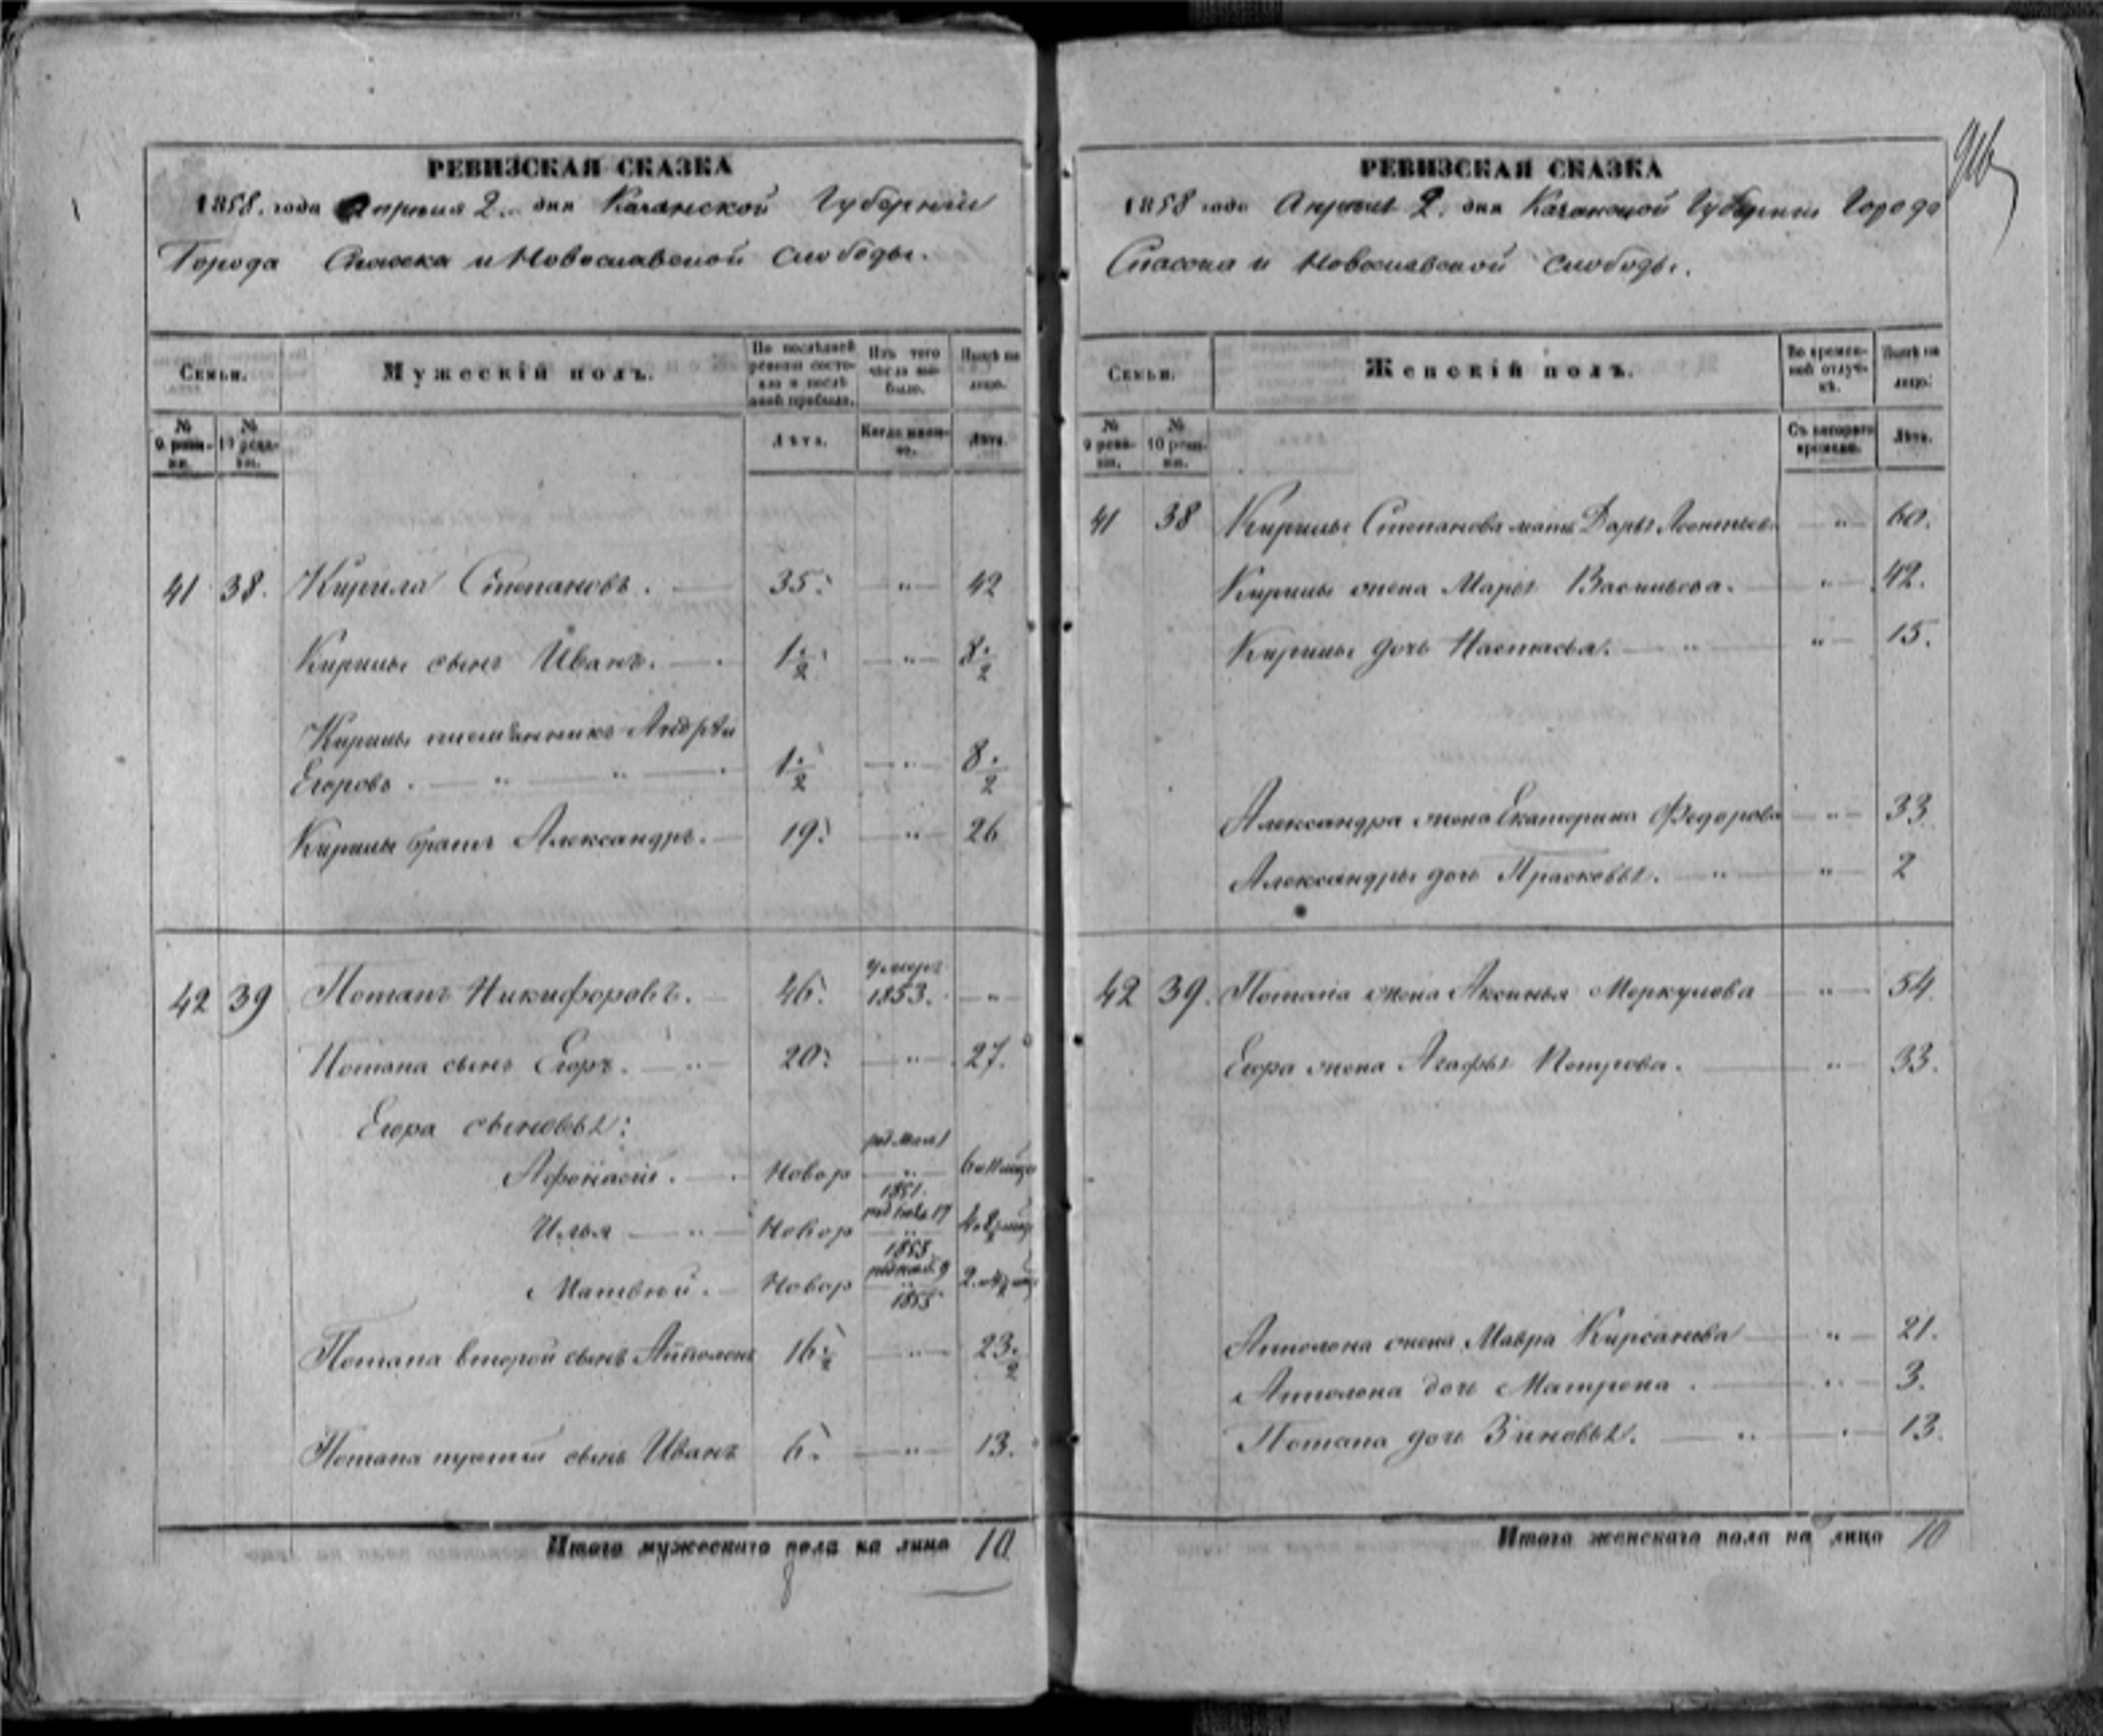 РЕВИЗСКАЯ СКАЗКА
1858. года Апреля 2. дня Казанской Губернии
Города Спасска и Новославской слободы.
Семьи.
Мужескій полъ.
По послѣдней ревизіи состояло и послѣ оной прибыло.
Изъ того числа выбыло.
Нынѣ на лицо.
№ 9 ревизіи.
№ 10 ревизіи.
Лѣта.
Когда именно.
Лѣта.
41 38. Кирила Степановъ. 35. „ 42
Кирилы сынъ Иванъ. 1 1/2 „ 8 1/2
Кирилы племянникъ Андрѣй
Егоровъ. „ „ 1 1/2 „ 8 1/2
Кирилы братъ Александръ. 19. „ 26
42 39 Потапъ Никифоровъ. 46. умеръ 1853. „
Потапа сынъ Егоръ. „ 20. „ 27.
Егора сыновья:
Афонасій. Новор „ 1851.
Илья „ Новор 1853
Матвѣй. Новор 1855
Потапа второй сынъ Апполонъ 16 1/2 „ 23 1/2
Потапа третій сынъ Иванъ 6. „ 13.
Итого мужескаго пола на лицо 10
916
РЕВИЗСКАЯ СКАЗКА
1858 года Апреля 2. дня Казанской Губернии Города
Спасска и Новославской слободы.
Семьи.
Женскій полъ.
Во временной отлучкѣ.
Нынѣ на лицо.
№ 9 ревизіи.
№ 10 ревизіи.
Съ котораго времени.
Лѣта.
41 38 Кирилы Степанова мать Дарья Леонтьева „ 60.
Кирилы жена Марья Васильева. „ 42.
Кирилы дочь Настасья. „ „ 15.
Александра жена Екатерина Федорова „ 33
Александры дочь Прасковья. „ „ 2
42 39. Потапа жена Аксинья Меркулова „ 54.
Егора жена Агафья Петрова. „ 33.
Апполона жена Мавра Кирсанова „ 21.
Апполона дочь Матрена. „ 3.
Потапа дочь Зиновья. „ „ 13.
Итого женскаго пола на лицо 10